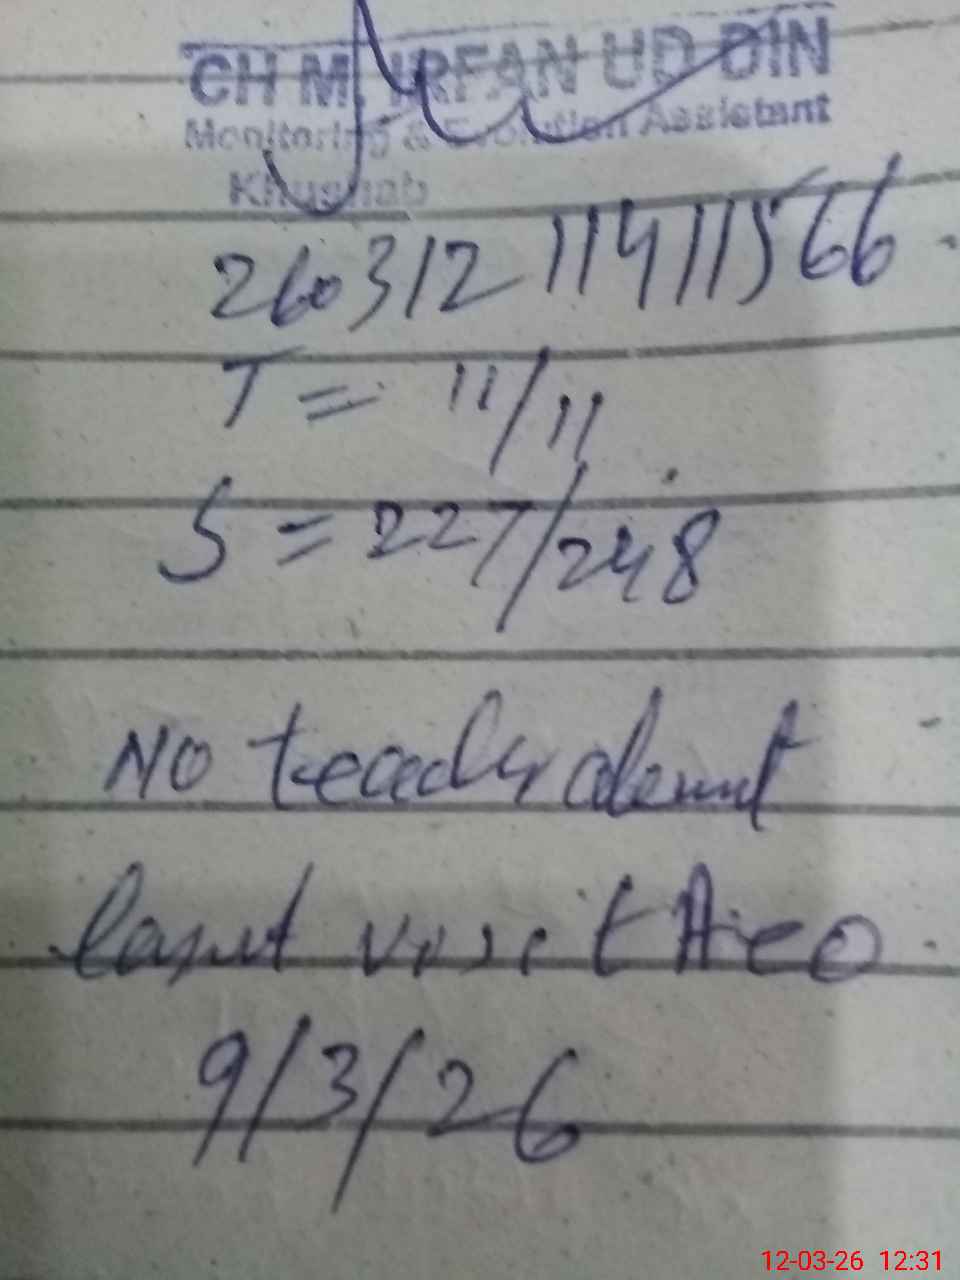 CH M. IRFAN UD DIN
Monitoring & Evolution Assistant
Khushab
260312 11411566
T = 11/11
S = 227/248
No teacher absent
last visit Aeo
9/3/26
12-03-26 12:31